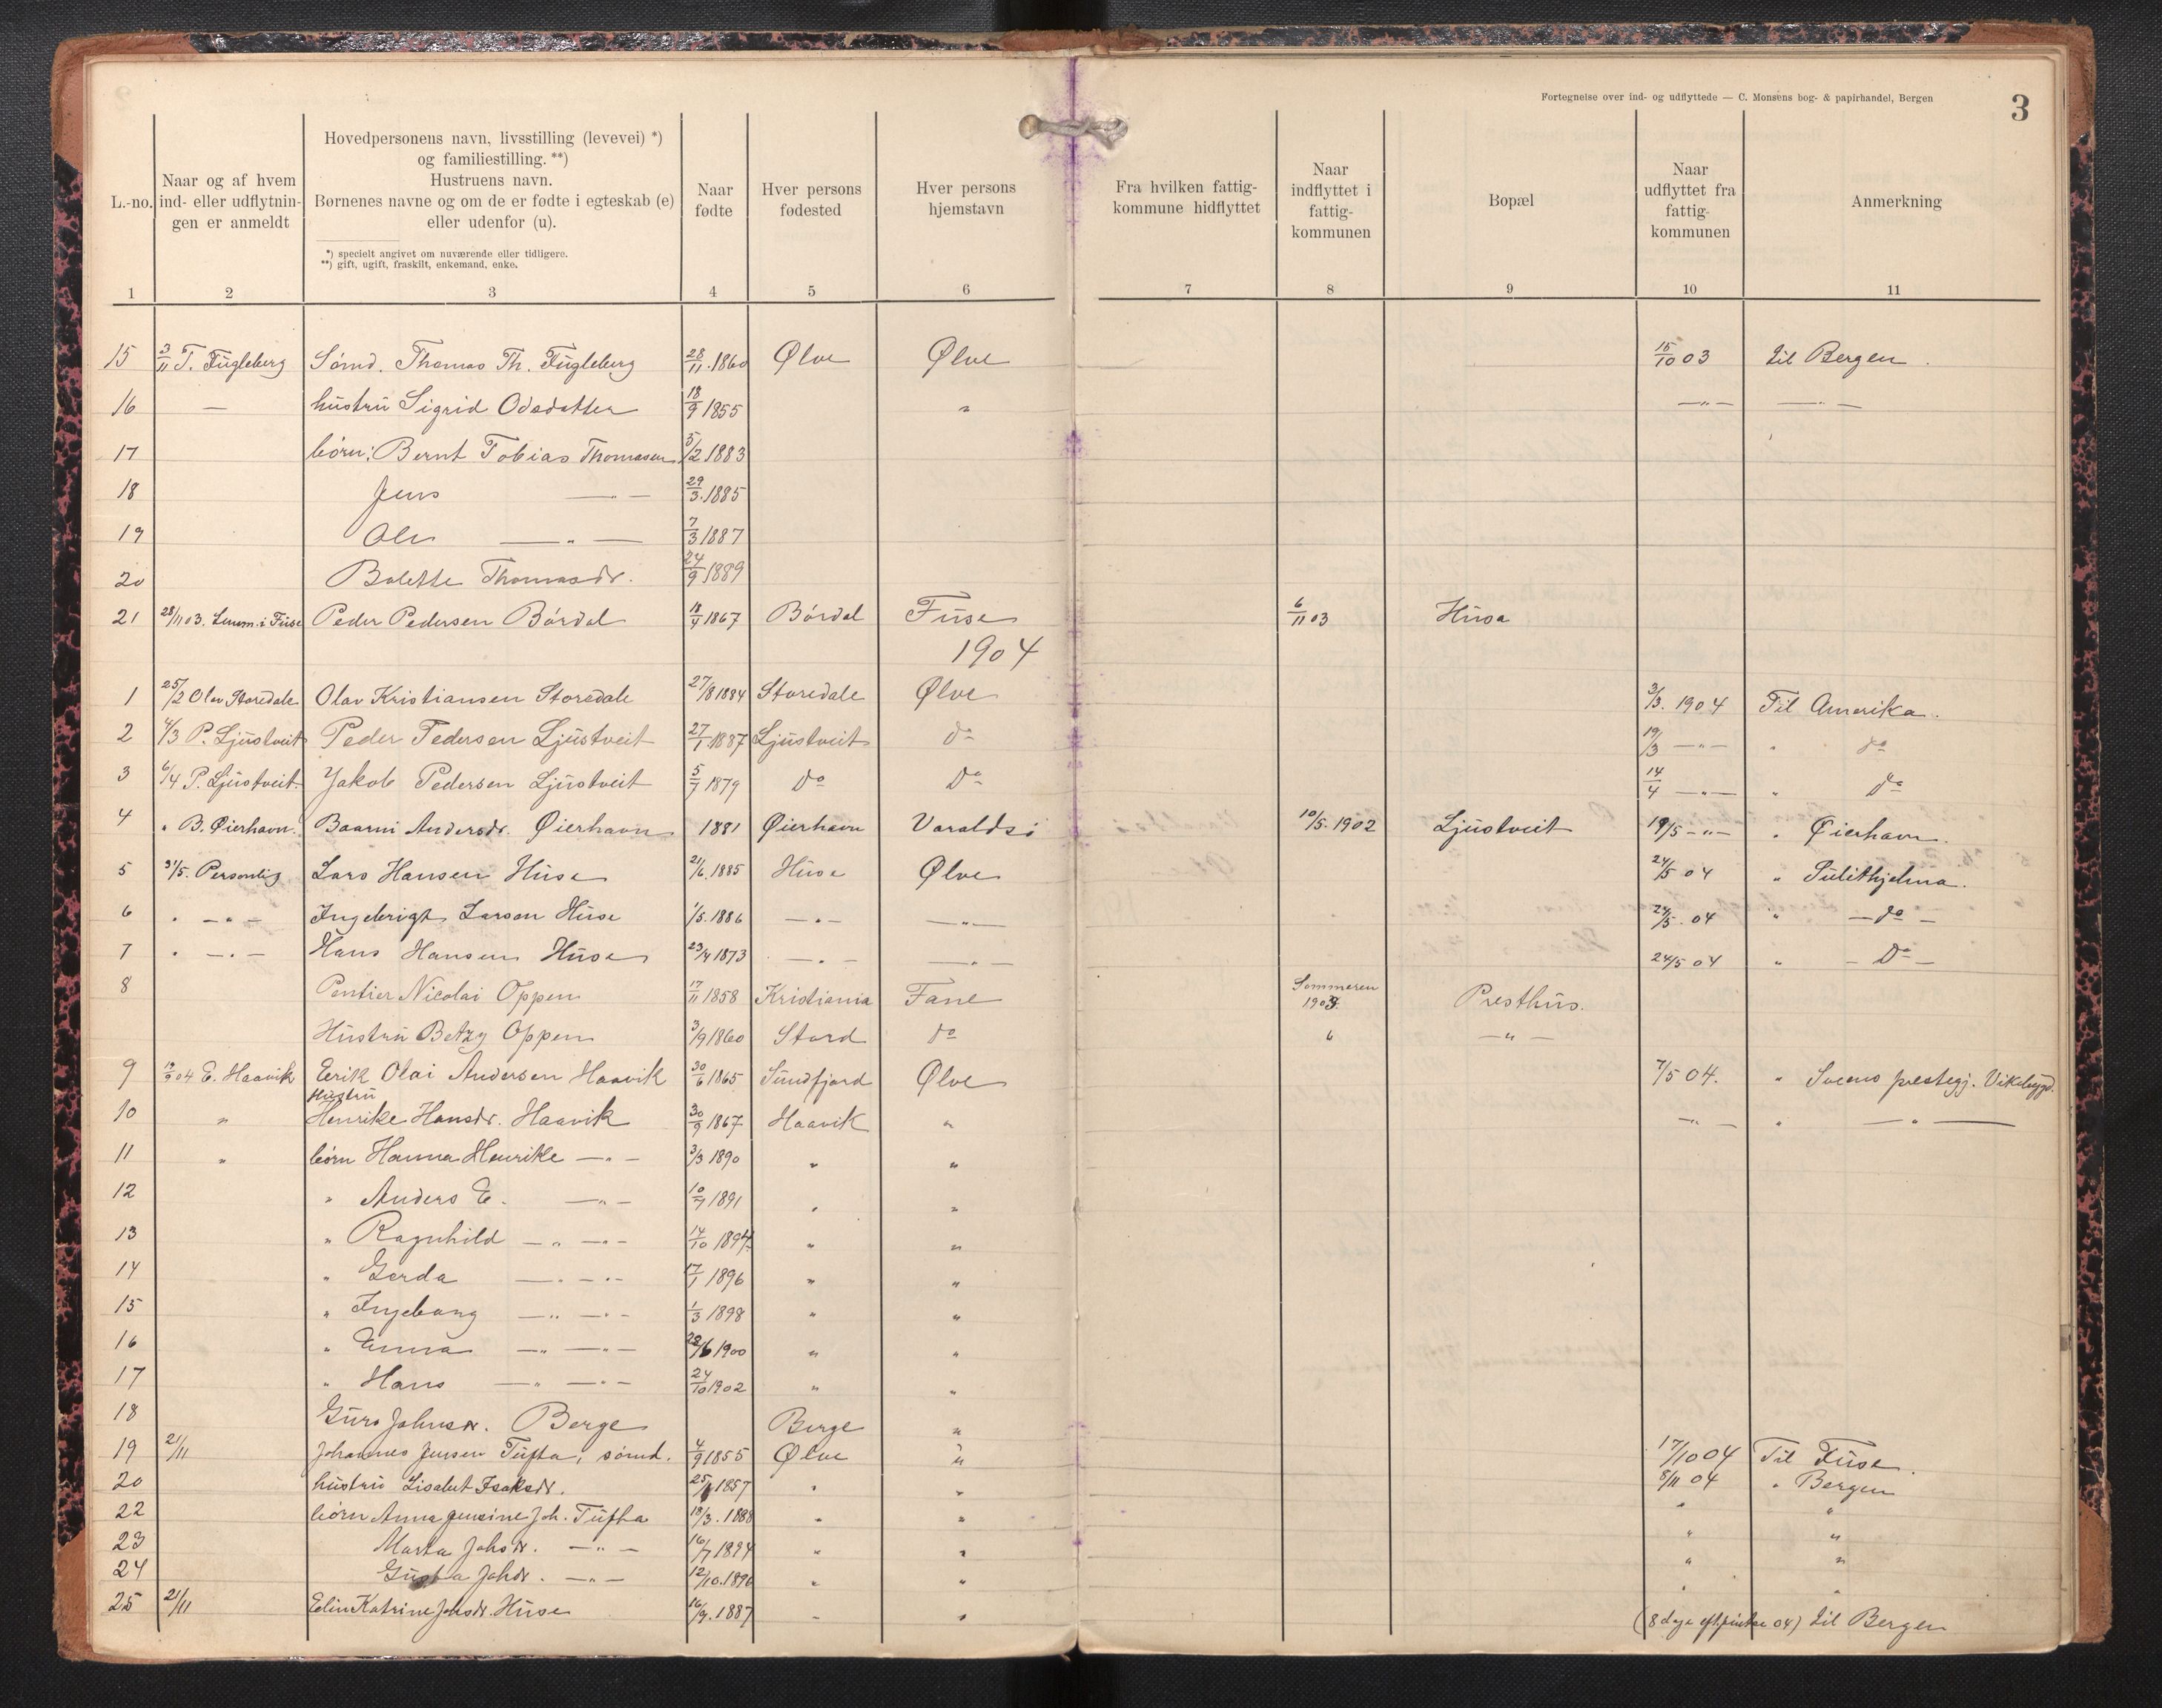 Fortegnelse over ind- og udflyttede — C. Monsens bog- & papirhandel, Bergen
3
L.-no.
Naar og af hvem ind- eller udflytningen er anmeldt
Hovedpersonens navn, livsstilling (levevei) *)
og familiestilling. **)
Hustruens navn.
Børnenes navne og om de er fødte i egteskab (e)
eller udenfor (u).
*) specielt angivet om nuværende eller tidligere.
**) gift, ugift, fraskilt, enkemand, enke.
Naar fødte
Hver persons fødested
Hver persons hjemstavn
Fra hvilken fattigkommune hidflyttet
Naar indflyttet i fattigkommunen
Bopæl
Naar udflyttet fra fattigkommunen
Anmerkning
1 2 3 4 5 6 7 8 9 10 11
15 3/11 T. Fugleberg Sømd. Thomas Th. Fugleberg 28/11.1860 Ølve Ølve 15/10 03 til Bergen.
16 — hustru Sigrid Odsdatter 18/9 1855 " —"— —"—
17 børn: Bernt Tobias Thomasen 5/2 1883
18 Jens —"— 29/3.1885
19 Ole —"— 7/3 1887
20 Bolette Thomasdr. 24/9 1889
21 28/11 03. Lensm. i Fuse Peder Pedersen Bórdal 18/4 1867 Bórdal Fuse 6/11 03 Husa
1904
1 25/2 Olav Storedale Olav Kristiansen Storedale 27/8 1884 Storedale Ølve 3/3. 1904 Til Amerika.
2 4/3 P. Ljustveit Peder Pedersen Ljustveit 27/1 1887 Ljustveit do 19/3 —"— " do
3 6/4 P. Ljustveit. Jakob Pedersen Ljustveit 5/7 1879 Do Do 14/4 —"— " do
4 " B. Øierhavn. Baarni Andersdr. Øierhavn 1881 Øierhavn Varaldsö 10/5. 1902 Ljustveit 19/5 —"— " Øierhavn.
5 31/5. Personlig Lars Hansen Huse 21/6.1885 Huse Ølve 24/5 04 " Sulithjelma.
6 " —"— Ingebrigt Larsen Huse 1/5.1886 —"— —"— 24/5.04 " — do —
7 " —"— Hans Hansen Huse 23/4 1873 —"— —"— 24/5 04 " — Do —
8 Pentier Nicolai Oppen 17/11 1858 Kristiania Fane Sommeren 1903. Presthus.
Hustru Betzy Oppen 3/9 1860 Stord do " —"—
9 12/9 04 E. Haavik Eerik Olai Andersen Haavik 30/6 1865 Sundfjord Ølve 7/5 04. " Sveens prestegj. Vikebygd.
10 " Hustru Henrike Hansdr. Haavik 30/9 1867 Haavik " —"— " —"—
11 " børn Hanna Henrikke —"— 3/3 1890 " "
12 " Anders E. —"— 10/7 1891 " "
13 " Ragnhild —"— —"— 14/10 1894 " "
14 " Gerda —"— —"— 17/1 1896 " "
15 " Ingeborg —"— —"— 1/3 1898 " "
16 " Emma —"— —"— 28/6 1900 " "
17 " Hans —"— —"— 24/10 1902 " "
18 Guro Johnsdr. Berge Berge "
19 21/11 Johannes Jensen Tufta, sømd. 4/9 1855 Ølve " 17/10 04 Til Fuse.
20 hustru Lisabet Isaksdr. 1857 " " 8/11 04 " Bergen
22 børn Anna Jensine Joh. Tufta 18/3.1888 " " " "
23 Marta Johsdr. —"— 16/7 1894 " " " "
24 Gusta Johdr. —"— 12/10.1896 " " " "
25 21/11 Elin Katrine Johsdr. Huse 16/9.1887 " " " "
(8 dage eft. pintse 04) til Bergen